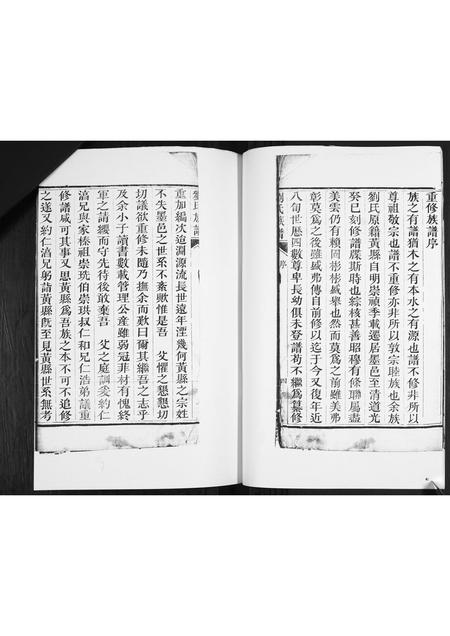 重修族譜序
族之有譜猶木之有本水之有源也譜不修非所以
尊祖敬宗也譜不重修亦非所以敦宗睦族也余族
劉氏原籍黃縣自明崇禎季載遷居墨邑至清道光
癸巳刻修譜牒斯時也綜核甚善昭穆有條聯屬盡
美雲仍有賴固彬彬盛舉也然而莫為之前雖美弗
彰莫為之後雖盛弗傳自前修以迄于今又復年近
八旬世歷四數尊卑長幼俱未登譜苟不繼為纂修
劉氏族譜
序
四
劉氏族譜
重加編次迨淵源流長世遠年湮幾何黃縣之宗姓
不失墨邑之世系不紊歟惟是吾 父懼之懇懇切
切議欲重修未隨乃撫余而歎曰爾其繼吾之志乎
及余小子讀書數載管理公產雖弱冠菲材有愧終
軍之請纓而守先待後敢棄吾 父之庭訓爰約仁
滈兄與家榛祖崇珗伯崇珙叔仁和兄仁浩弟議重
修譜咸可其事又思黃縣為吾族之本不可不追修
之遂又約仁滈兄躬詣黃縣旣至見黃縣世系無考